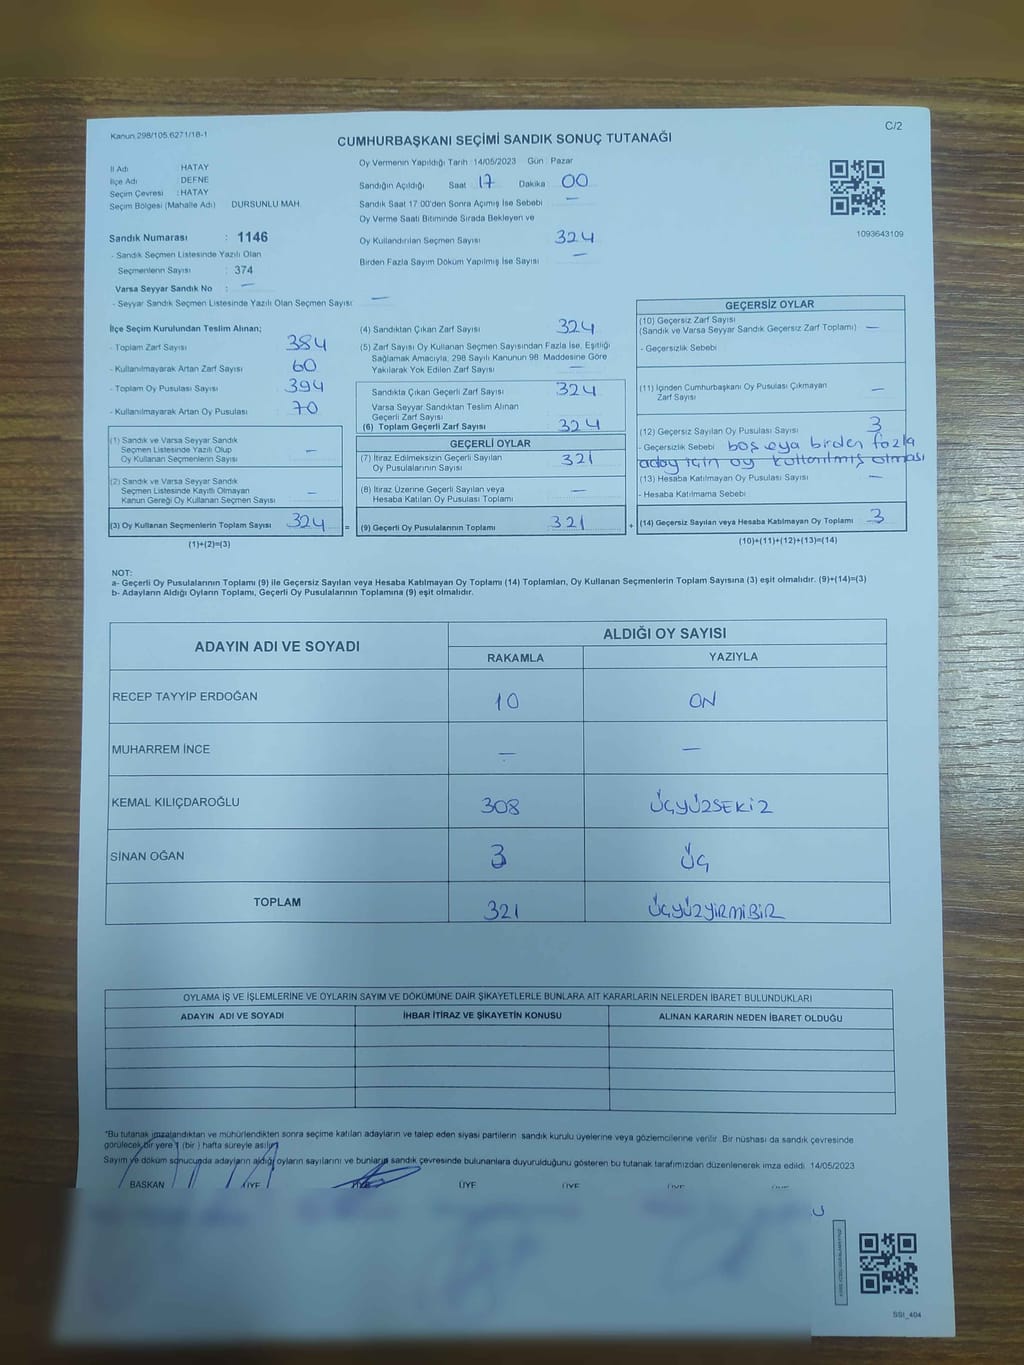 Kanun 298/105,6271/18-1
C/2
CUMHURBAŞKANI SEÇİMİ SANDIK SONUÇ TUTANAĞI
İl Adı : HATAY
İlçe Adı : DEFNE
Seçim Çevresi : HATAY
Seçim Bölgesi (Mahalle Adı) : DURSUNLU MAH.
Oy Vermenin Yapıldığı Tarih : 14/05/2023 Gün : Pazar
Sandığın Açıldığı Saat : 17 Dakika : 00
Sandık Saat 17:00'den Sonra Açımış İse Sebebi : —
Oy Verme Saati Bitiminde Sırada Bekleyen ve
Oy Kullandırılan Seçmen Sayısı : 324
Birden Fazla Sayım Döküm Yapılmış İse Sayısı : —
1093643109
Sandık Numarası : 1146
- Sandık Seçmen Listesinde Yazılı Olan
Seçmenlerin Sayısı : 374
Varsa Seyyar Sandık No : —
- Seyyar Sandık Seçmen Listesinde Yazılı Olan Seçmen Sayısı : —
İlçe Seçim Kurulundan Teslim Alınan;
- Toplam Zarf Sayısı : 384
- Kullanılmayarak Artan Zarf Sayısı : 60
- Toplam Oy Pusulası Sayısı : 394
- Kullanılmayarak Artan Oy Pusulası : 70
(1) Sandık ve Varsa Seyyar Sandık
Seçmen Listesinde Yazılı Olup
Oy Kullanan Seçmenlerin Sayısı : —
(2) Sandık ve Varsa Seyyar Sandık
Seçmen Listesinde Kayıtlı Olmayan
Kanun Gereği Oy Kullanan Seçmen Sayısı : —
(3) Oy Kullanan Seçmenlerin Toplam Sayısı : 324 =
(1)+(2)=(3)
(4) Sandıktan Çıkan Zarf Sayısı : 324
(5) Zarf Sayısı Oy Kullanan Seçmen Sayısından Fazla İse, Eşitliği
Sağlamak Amacıyla, 298 Sayılı Kanunun 98. Maddesine Göre
Yakılarak Yok Edilen Zarf Sayısı : —
Sandıkta Çıkan Geçerli Zarf Sayısı : 324
Varsa Seyyar Sandıktan Teslim Alınan
Geçerli Zarf Sayısı :
(6) Toplam Geçerli Zarf Sayısı : 324
GEÇERLİ OYLAR
(7) İtiraz Edilmeksizin Geçerli Sayılan
Oy Pusulalarının Sayısı : 321
(8) İtiraz Üzerine Geçerli Sayılan veya
Hesaba Katılan Oy Pusulası Toplamı : —
(9) Geçerli Oy Pusulalarının Toplamı : 321 +
GEÇERSİZ OYLAR
(10) Geçersiz Zarf Sayısı
(Sandık ve Varsa Seyyar Sandık Geçersiz Zarf Toplamı) : —
- Geçersizlik Sebebi :
(11) İçinden Cumhurbaşkanı Oy Pusulası Çıkmayan
Zarf Sayısı : —
(12) Geçersiz Sayılan Oy Pusulası Sayısı : 3
- Geçersizlik Sebebi : boş veya birden fazla
aday için oy kullanılmış olması
(13) Hesaba Katılmayan Oy Pusulası Sayısı : —
- Hesaba Katılmama Sebebi :
(14) Geçersiz Sayılan veya Hesaba Katılmayan Oy Toplamı : 3
(10)+(11)+(12)+(13)=(14)
NOT:
a- Geçerli Oy Pusulalarının Toplamı (9) ile Geçersiz Sayılan veya Hesaba Katılmayan Oy Toplamı (14) Toplamları, Oy Kullanan Seçmenlerin Toplam Sayısına (3) eşit olmalıdır. (9)+(14)=(3)
b- Adayların Aldığı Oyların Toplamı, Geçerli Oy Pusulalarının Toplamına (9) eşit olmalıdır.
ADAYIN ADI VE SOYADI ALDIĞI OY SAYISI
RAKAMLA YAZIYLA
RECEP TAYYİP ERDOĞAN 10 ON
MUHARREM İNCE — —
KEMAL KILIÇDAROĞLU 308 ÜÇYÜZSEKİZ
SİNAN OĞAN 3 ÜÇ
TOPLAM 321 ÜÇYÜZYİRMİBİR
OYLAMA İŞ VE İŞLEMLERİNE VE OYLARIN SAYIM VE DÖKÜMÜNE DAİR ŞİKAYETLERLE BUNLARA AİT KARARLARIN NELERDEN İBARET BULUNDUKLARI
ADAYIN ADI VE SOYADI İHBAR İTİRAZ VE ŞİKAYETİN KONUSU ALINAN KARARIN NEDEN İBARET OLDUĞU
*Bu tutanak imzalandıktan ve mühürlendikten sonra seçime katılan adayların ve talep eden siyasi partilerin sandık kurulu üyelerine veya gözlemcilerine verilir. Bir nüshası da sandık çevresinde
görülecek bir yere 1 (bir ) hafta süreyle asılır.
Sayım ve döküm sonucunda adayların aldığı oyların sayılarını ve bunların sandık çevresinde bulunanlara duyurulduğunu gösteren bu tutanak tarafımızdan düzenlenerek imza edildi. 14/05/2023
BAŞKAN ÜYE ÜYE ÜYE ÜYE ÜYE ÜYE
SSI_404